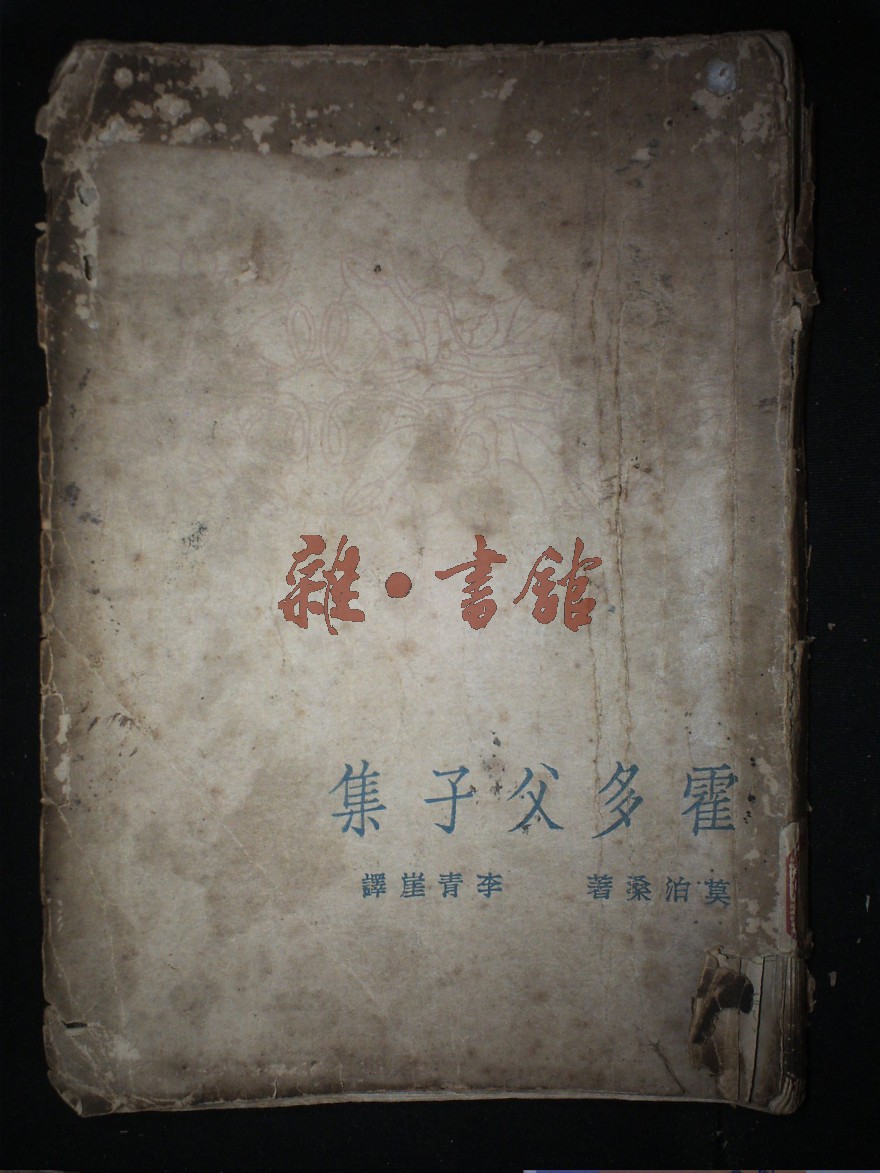 雜·書館
霍多父子集
莫泊桑著 李青崖譯